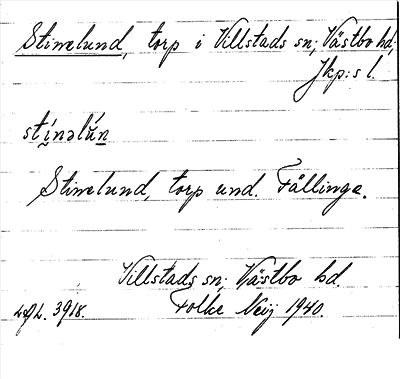 Stinelund, torp i Villstads sn; Västbo hd;
Jkp:s l.
stínəlŭn
Stinelund, torp und. Fållinga.
Villstads sn; Västbo hd.
3918. Folke Neij 1940.